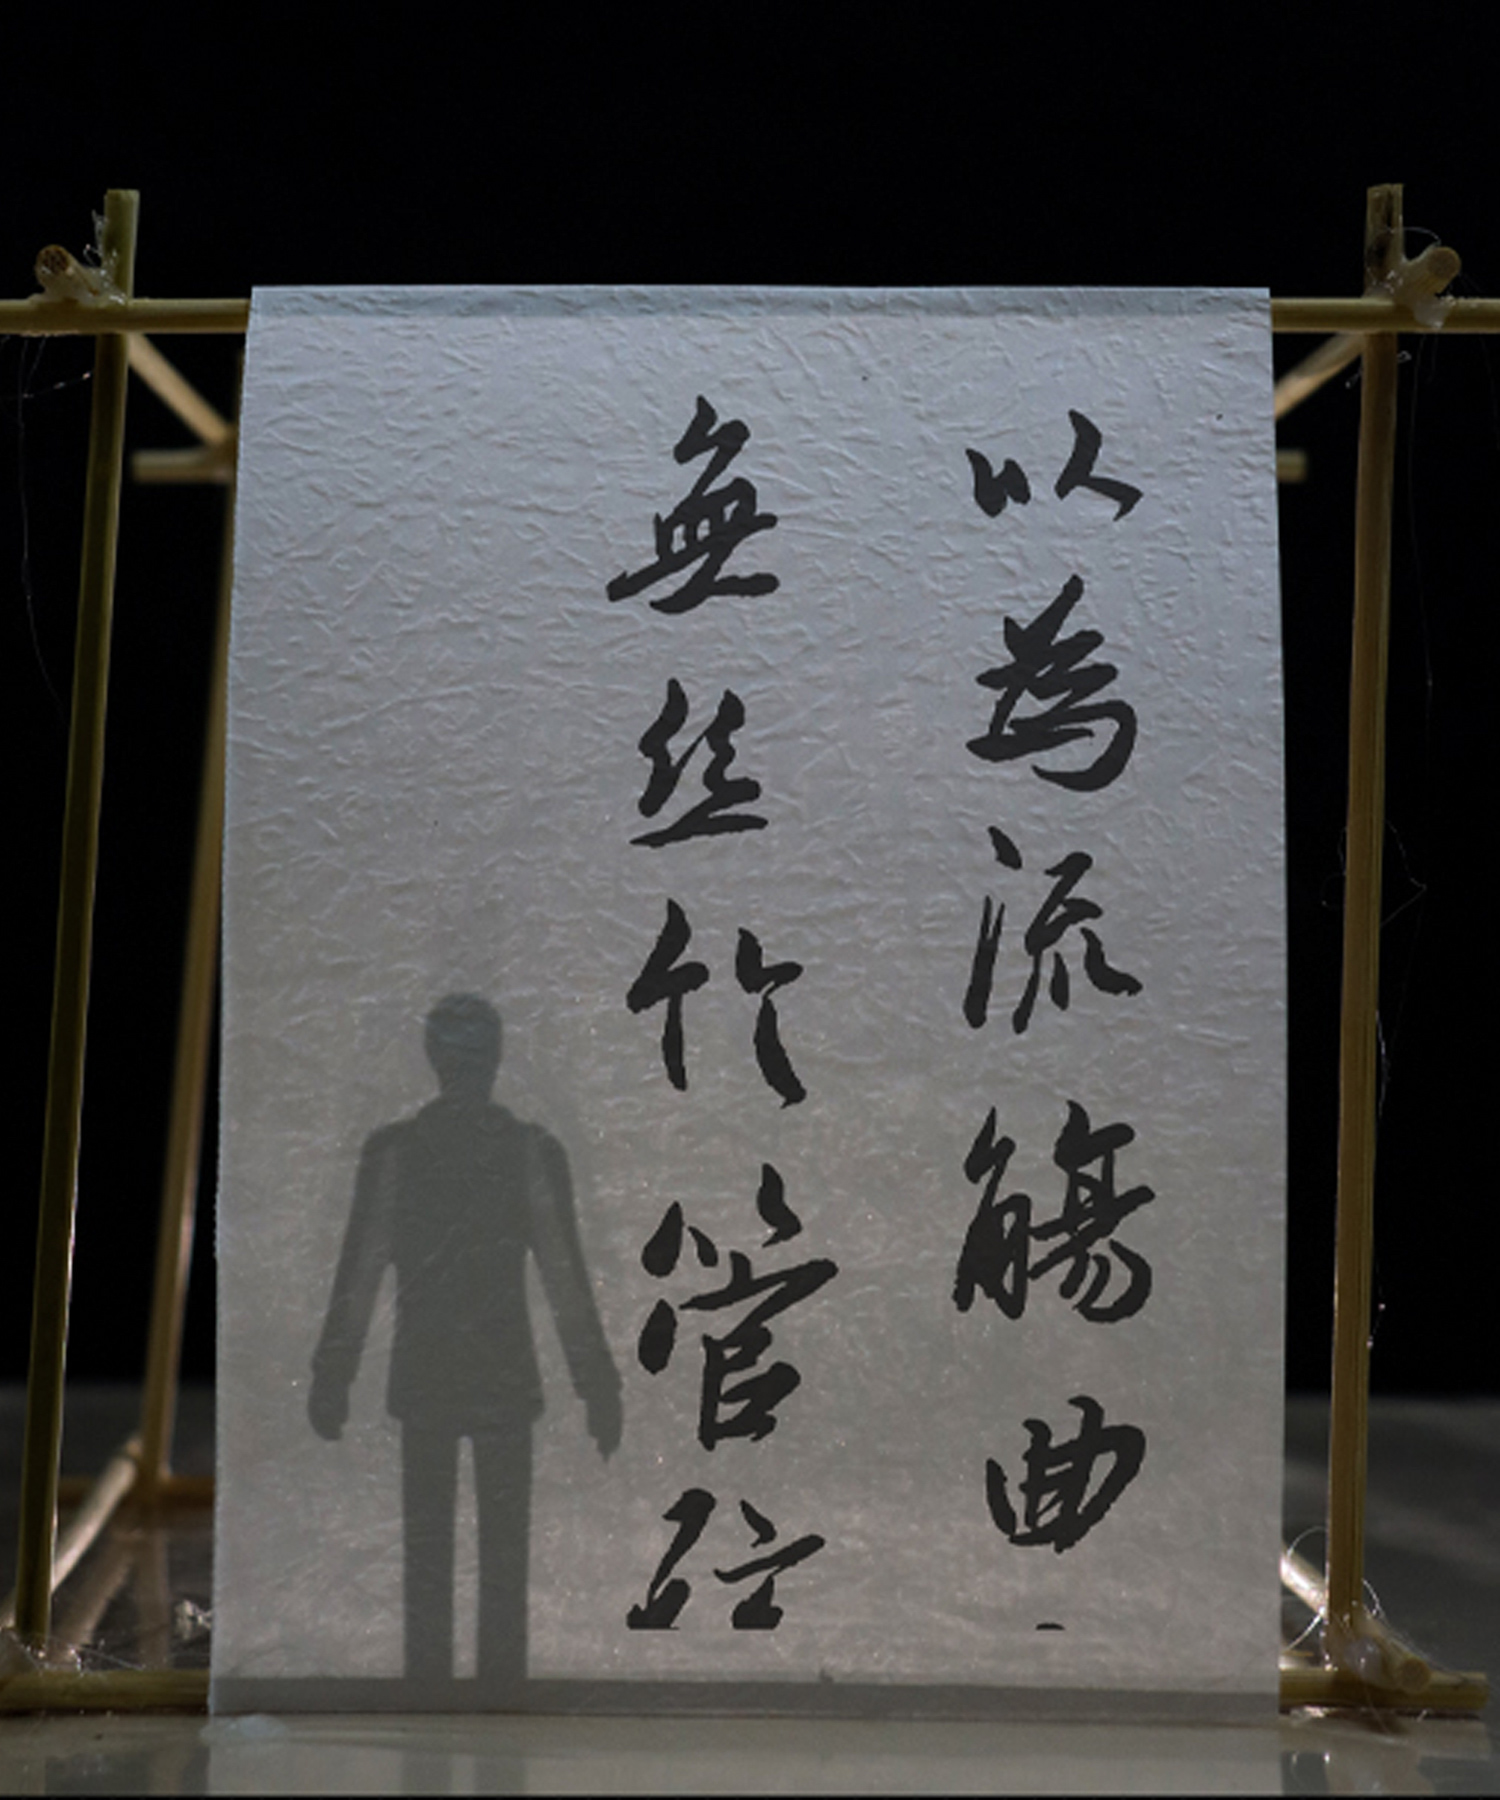 以為流觴曲
無丝竹管